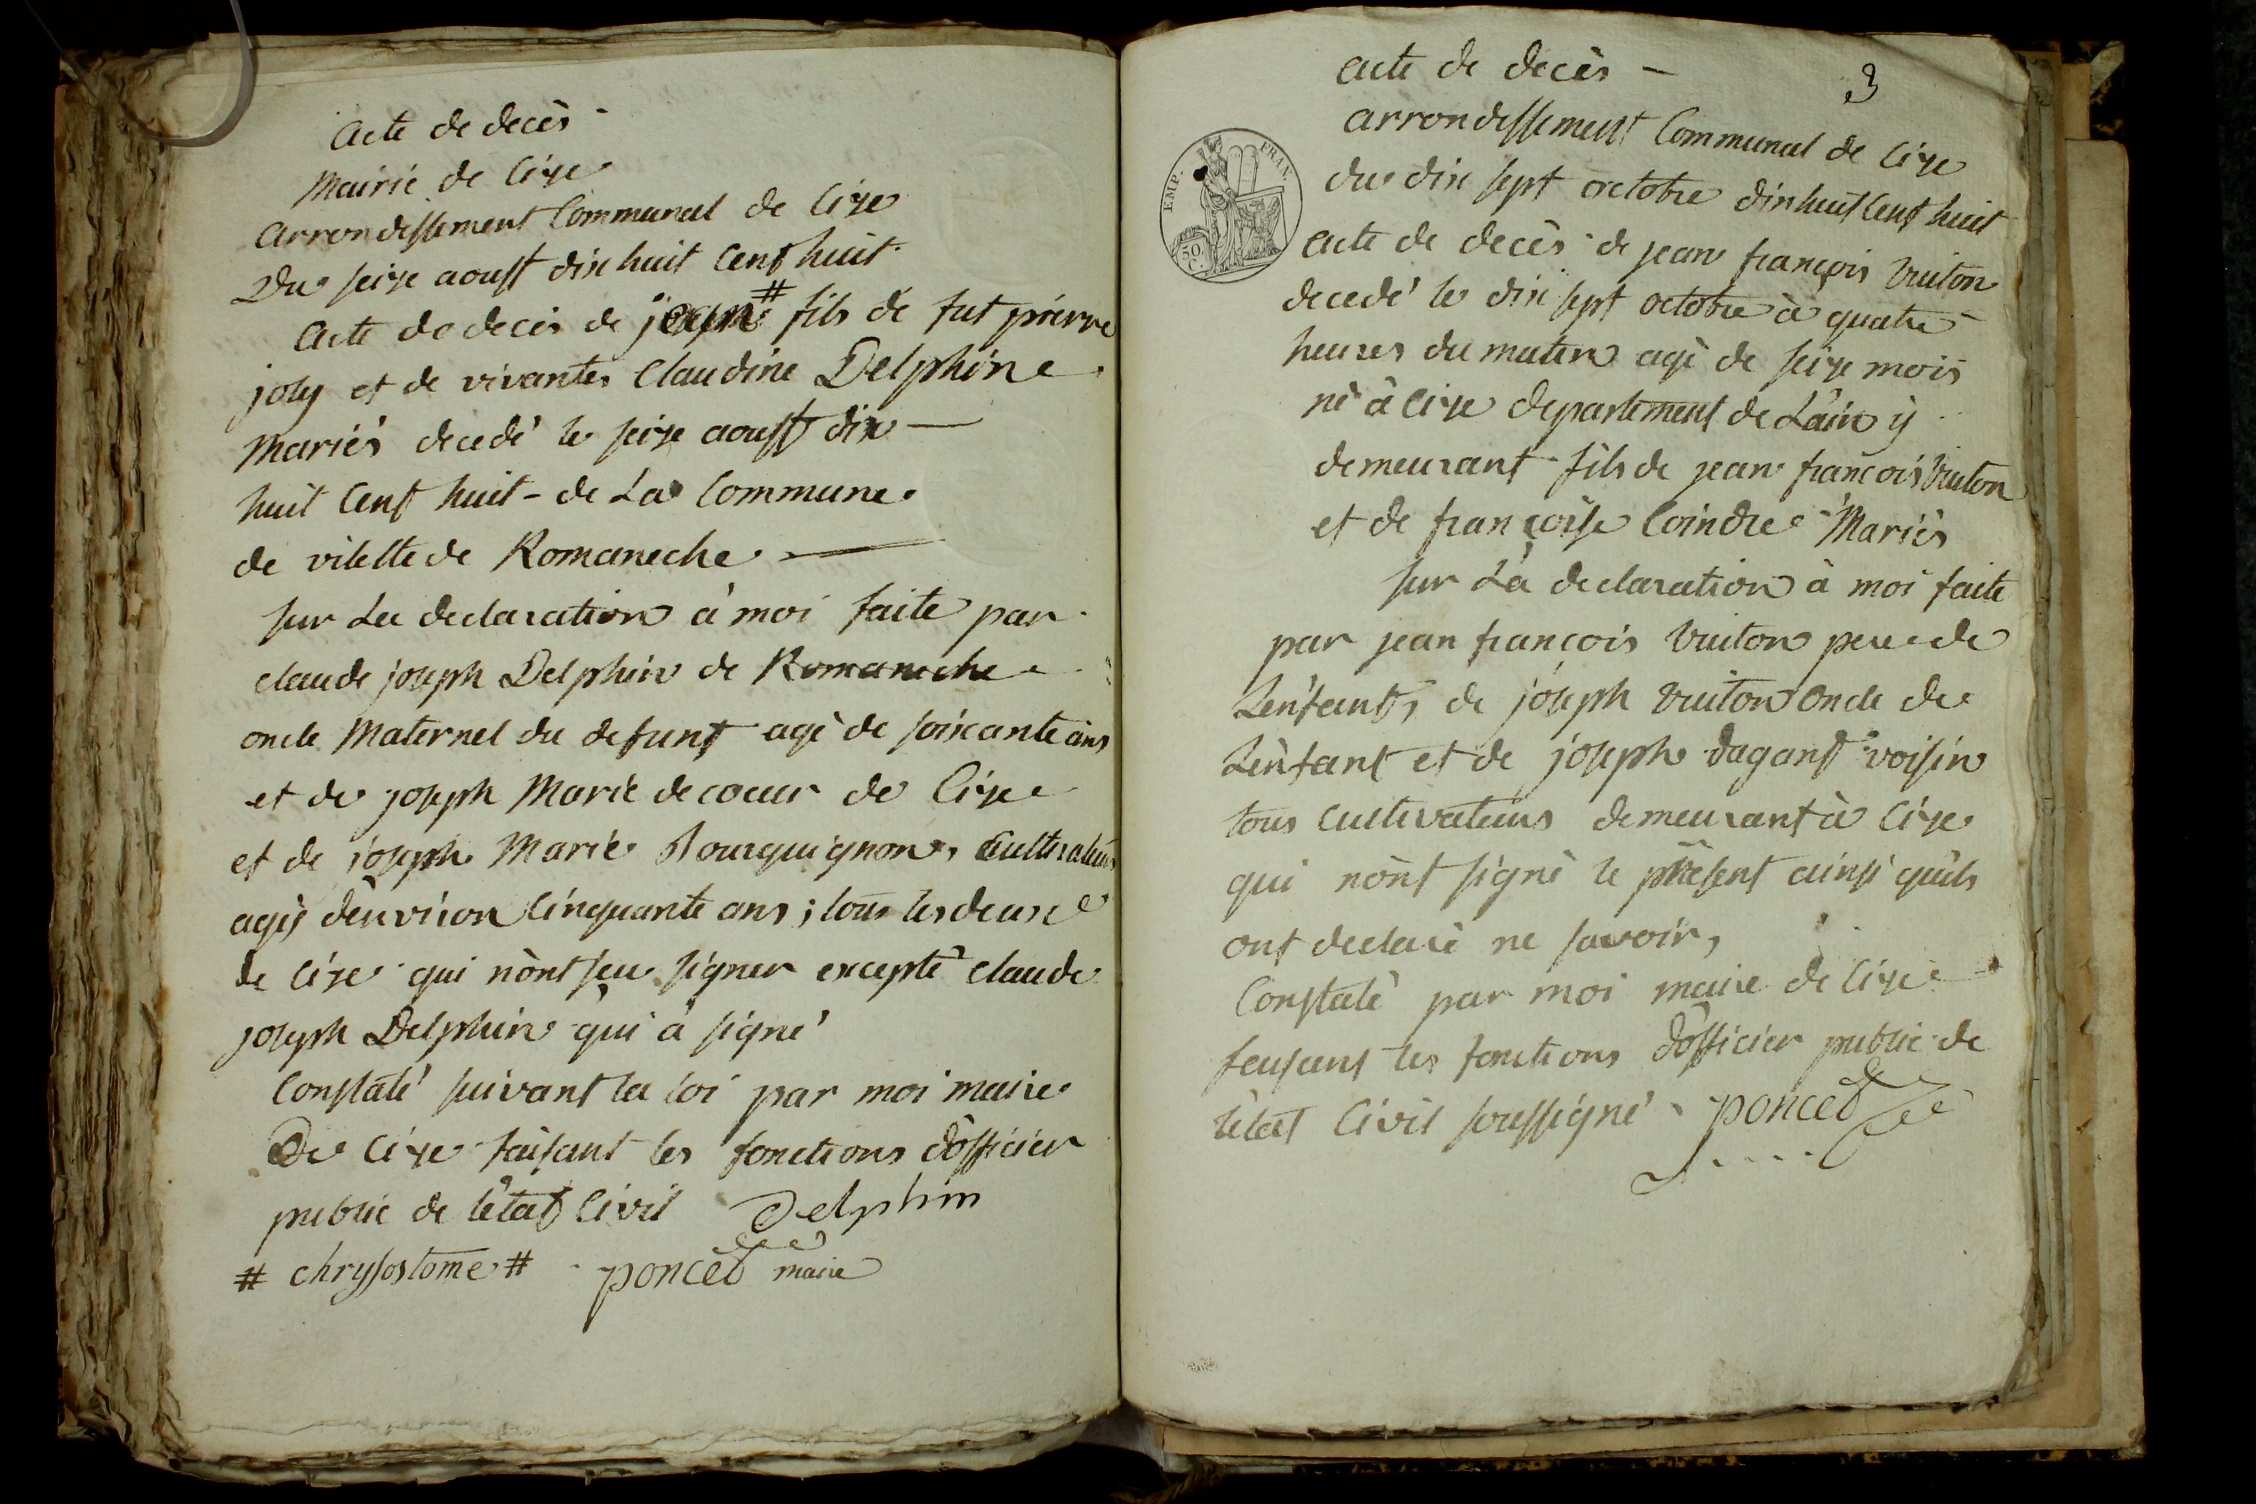 acte de decès
Mairie de Cize
arrondissement Communal de Cize
Du seize aoust dix huit Cent huit
acte de deces de jean # fils de fut pierre
joly et de vivante Claudine Delphine
Mariés decedé le seize aoust dix —
huit Cent huit - de La Commune
de vilette de Romaneche —
sur La declaration à moi faite par
claude joseph Delphin de Romaneche
oncle Maternel du defunt agé de soixante ans
et de joseph Marie decoeur de Cize
et de joseph Marie Bourguignon, Cultivateurs
agés dènviron Cinquante ans ; tous les deux
de Cize qui nònt seu signer excepté claude
joseph Delphin qui à signé
Constaté suivant la loi par moi maire
De Cize faisant les fonctions dòfficier
public de lètat Civil Delphin
# chrysostome # poncet maire
acte de decès —
3
arrondissement Communal de Cize
EMP. FRAN.
50 C.
du dix sept octobre dix huit Cent huit
acte de decès de jean françois Vuiton
decedé le dix sept octobre à quatre
heures du matin agé de seize mois
né à Cize departement de Làin y
demeurant fils de jean françois Vuiton
et de françoise Coindre Mariés
sur Là declaration à moi faite
par jean françois Vuiton pere de
Lènfant, de joseph Vuiton oncle de
Lènfant et de joseph dagant voisin
tous cultivateurs demeurant à Cize
qui nònt signé le présent ainsi quìls
ont declaré ne savoir,
Constaté par moi maire de Cize
feusant les fonctions dòfficier public de
lètat Civil soussigné poncet